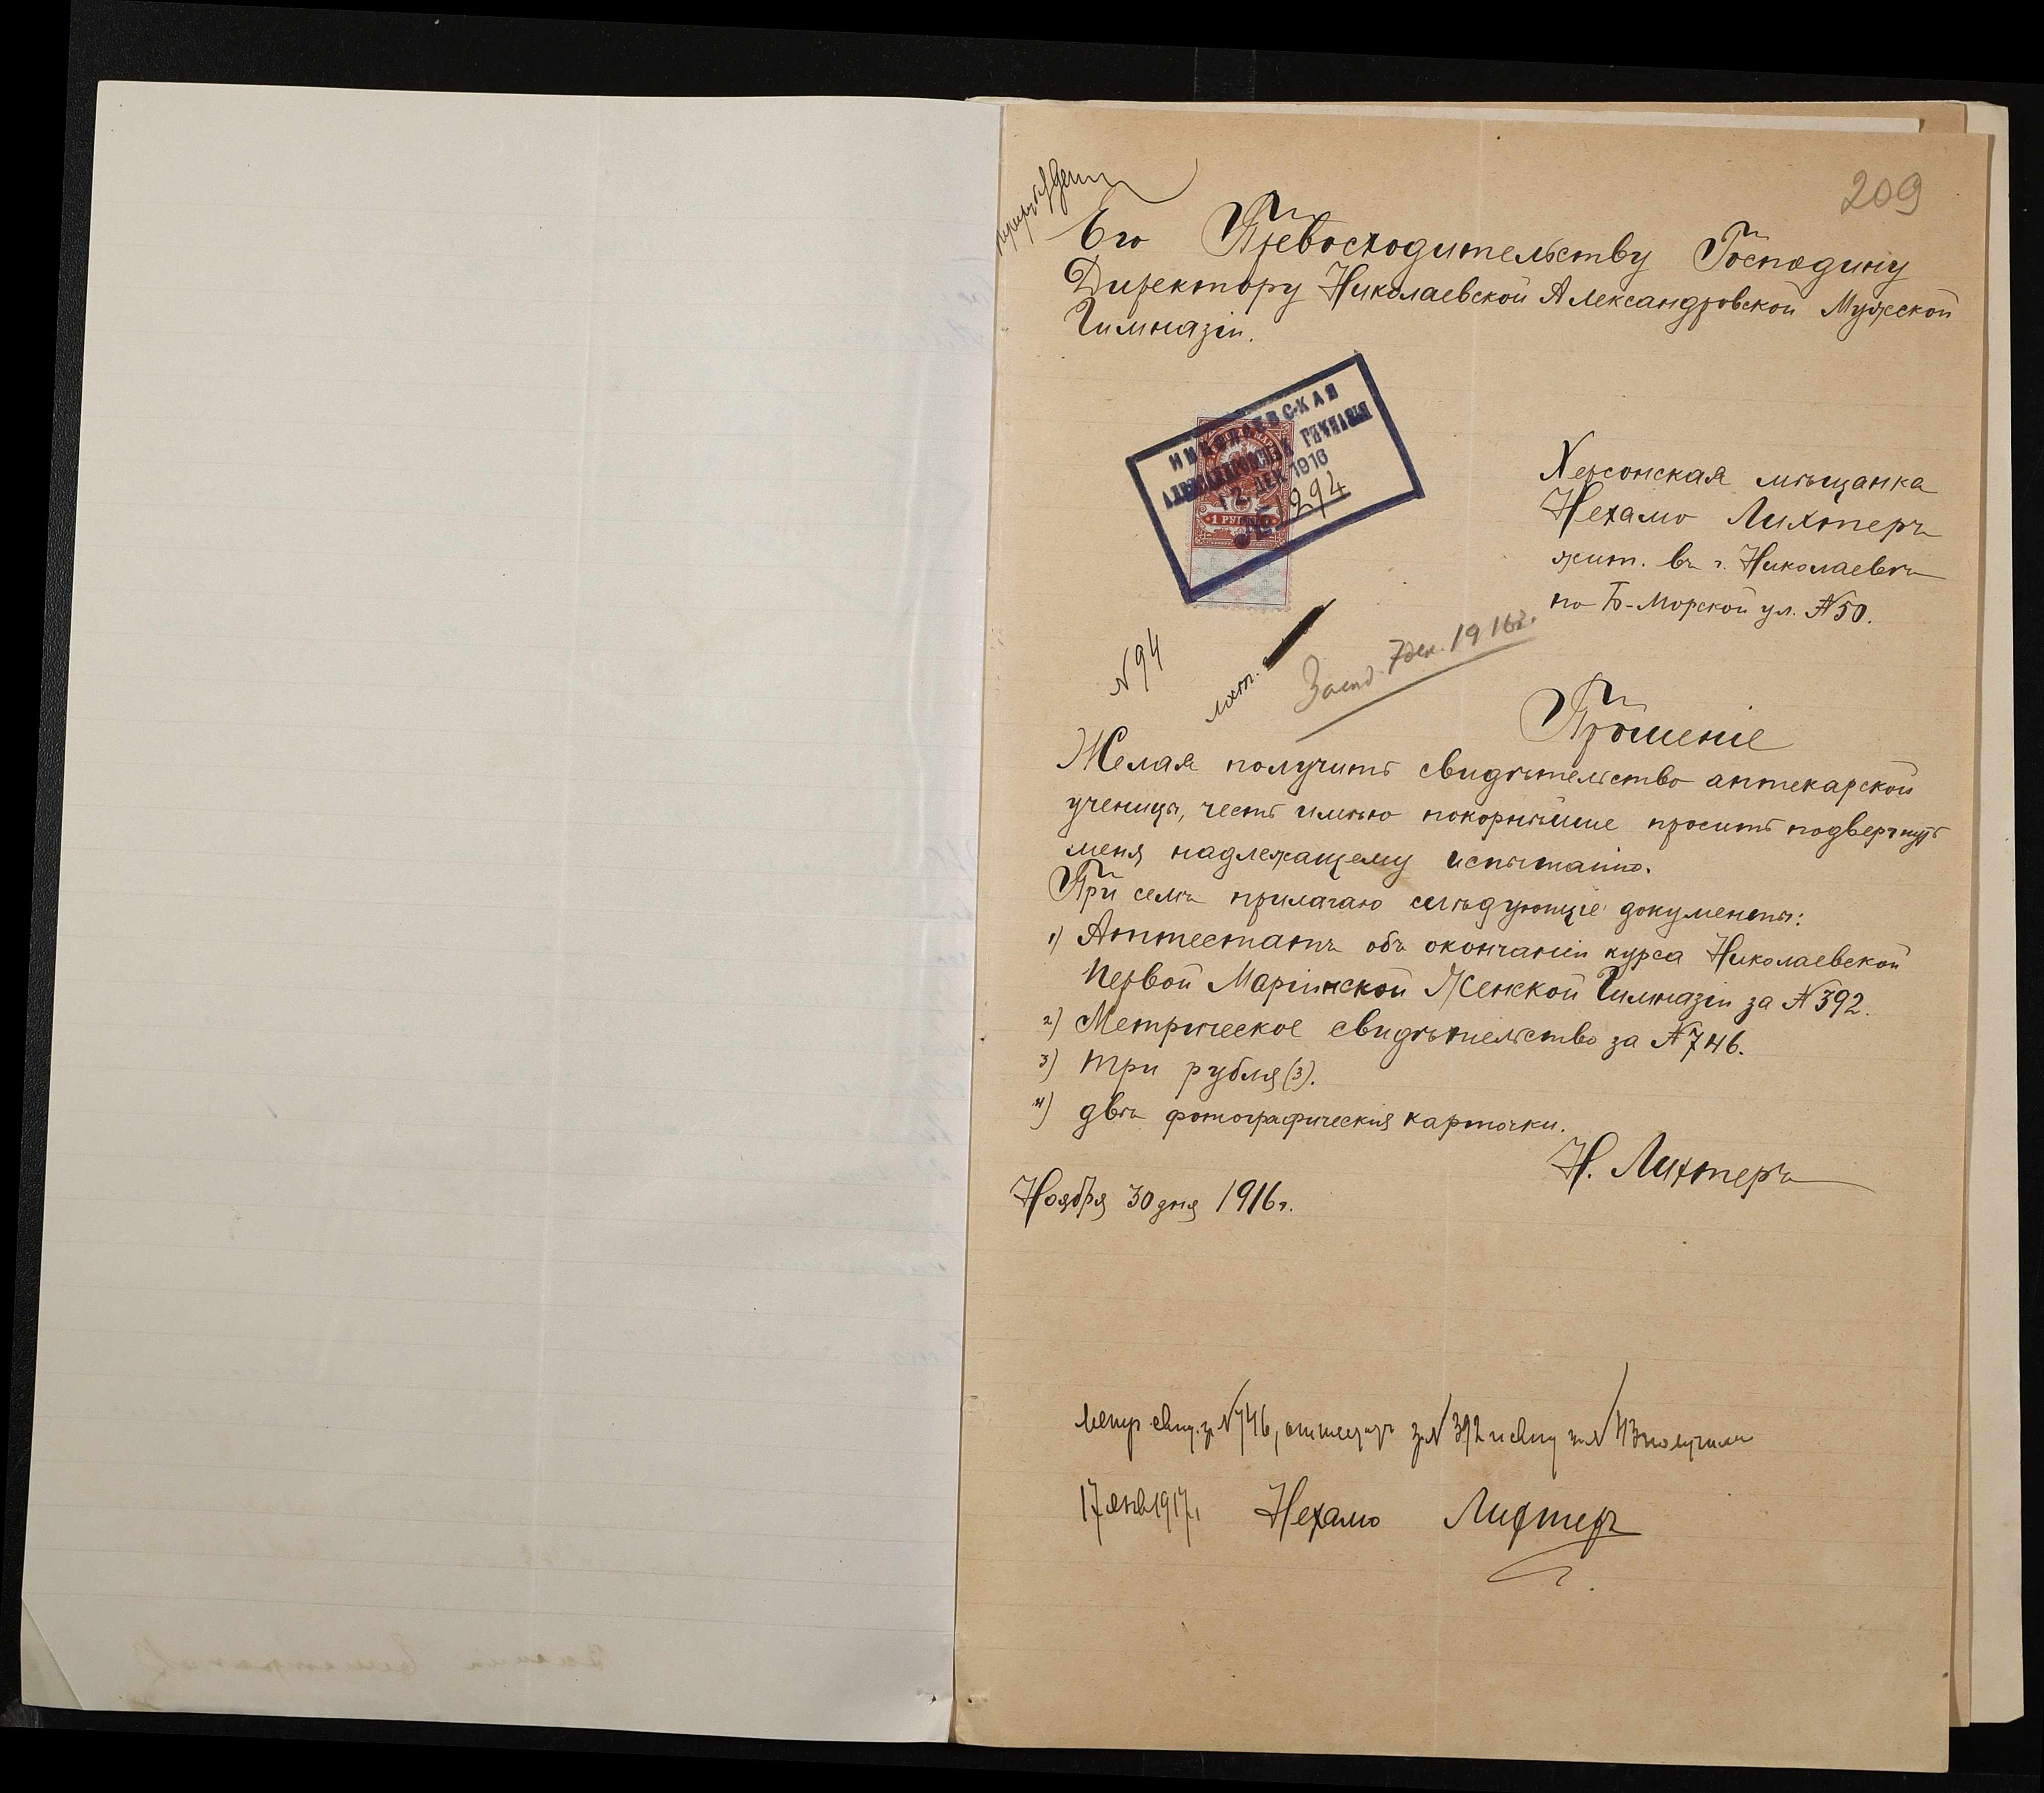 209
Его Превосходительству Господину
Директору Николаевской Александровской Мужской
Гимназіи.
НИКОЛАЕВСКАЯ
АЛЕКСАНДРОВСКАЯ ГИМНАЗІЯ
2. ДЕК 1916
№ 1294
1 РУБЛЬ
Херсонская мѣщанка
Нехамо Лихтеръ
жит. въ г. Николаевѣ
по Б-Морской ул. №50.
№94
7 дек. 1916 г.
Прошеніе
Желая получить свидѣтельство аптекарской
ученицы, честь имѣю покорнѣйше просить подвергнуть
меня надлежащему испытанію.
При семъ прилагаю слѣдующіе документы:
1) Аттестатъ объ окончаніи курса Николаевской
Первой Маріинской Женской Гимназіи за №392.
2) Метрическое свидѣтельство за №746.
3) три рубля (3).
4) двѣ фотографическія карточки.
Н. Лихтеръ
Ноября 30 дня 1916 г.
Метр. свид. за №746, аттестатъ за №392 и свид за №43 получила
17 янв 1917 г. Нехамо Лихтеръ